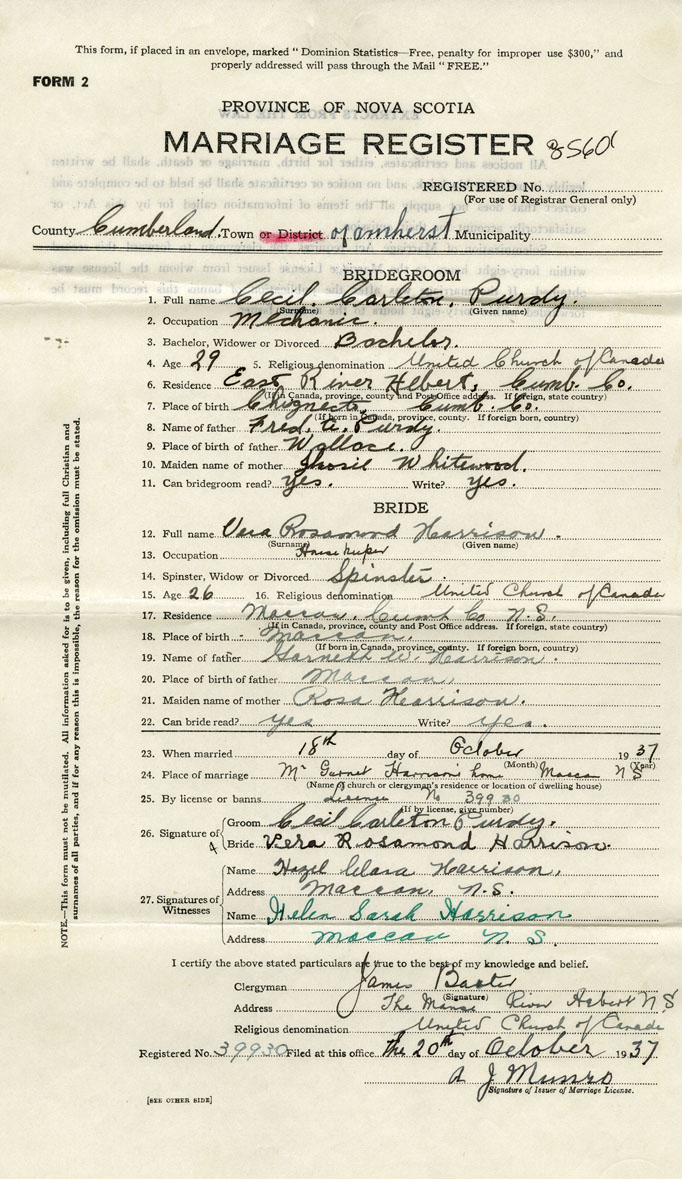 This form, if placed in an envelope, marked "Dominion Statistics—Free, penalty for improper use $300," and
properly addressed will pass through the Mail "FREE."
FORM 2
PROVINCE OF NOVA SCOTIA
MARRIAGE REGISTER 8560
REGISTERED No.
(For use of Registrar General only)
County Cumberland. Town or District of amherst Municipality
BRIDEGROOM
1. Full name Cecil. Carleton. Purdy.
(Surname) (Given name)
2. Occupation Mechanic.
3. Bachelor, Widower or Divorced Bachelor.
4. Age 29 5. Religious denomination United Church of Canada
6. Residence East River Hebert, Cumb. Co.
(If in Canada, province, county and Post Office address. If foreign, state country)
7. Place of birth Chignecto, Cumb. Co.
(If born in Canada, province, county. If foreign born, country)
8. Name of father Fred. Purdy.
9. Place of birth of father Wallace.
10. Maiden name of mother Whitewood.
11. Can bridegroom read? Yes. Write? Yes.
BRIDE
12. Full name Vera Rosamond Harrison.
(Surname) (Given name)
13. Occupation Housekeeper
14. Spinster, Widow or Divorced Spinster.
15. Age 26 16. Religious denomination United Church of Canada
17. Residence Maccan, Cumb Co N.S.
(If in Canada, province, county and Post Office address. If foreign, state country)
18. Place of birth Maccan.
(If born in Canada, province, county. If foreign born, country)
19. Name of father Garnett W. Harrison.
20. Place of birth of father Maccan.
21. Maiden name of mother Rosa Harrison.
22. Can bride read? yes Write? yes.
23. When married 18th day of October 1937
(Month) (Year)
24. Place of marriage Mr Garnet Harrison's home Maccan N S
(Name of church or clergyman's residence or location of dwelling house)
25. By license or banns License No 39930
(If by license, give number)
26. Signature of Groom Cecil Carleton Purdy.
Bride Vera Rosamond Harrison.
27. Signatures of Witnesses
Name Hazel Clara Harrison,
Address Maccan, N.S.
Name Helen Sarah Harrison
Address Maccan N. S.
I certify the above stated particulars are true to the best of my knowledge and belief.
Clergyman James Baxter
(Signature)
Address The Manse River Hebert N S
Religious denomination United Church of Canada
Registered No. 39930 Filed at this office the 20th day of October 1937
A J. Munro
Signature of Issuer of Marriage License.
[SEE OTHER SIDE]
NOTE.—This form must not be mutilated. All information asked for is to be given, including full Christian and
surnames of all parties, and if for any reason this is impossible, the reason for the omission must be stated.